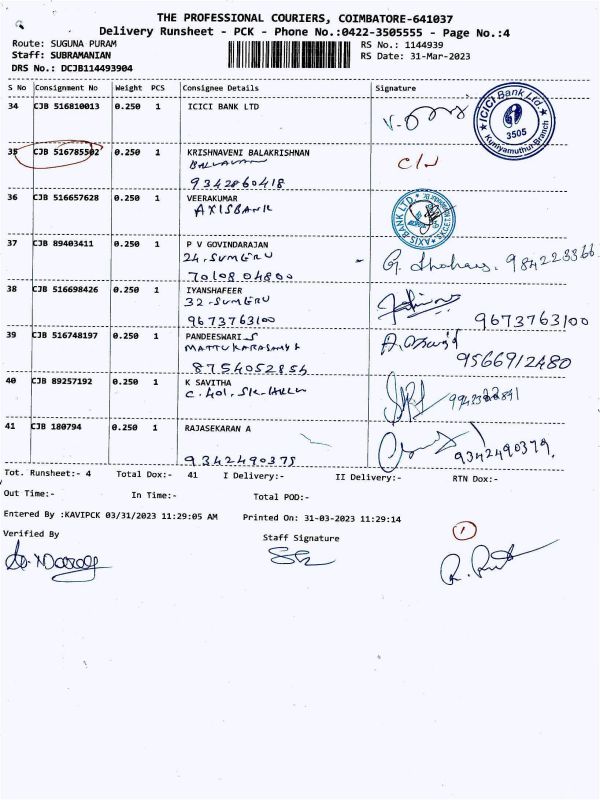 THE PROFESSIONAL COURIERS, COIMBATORE-641037
Delivery Runsheet - PCK - Phone No.:0422-3505555 - Page No.:4
Route: SUGUNA PURAM RS No.: 1144939
Staff: SUBRAMANIAN RS Date: 31-Mar-2023
DRS No.: DCJB114493904
S No Consignment No Weight PCS Consignee Details Signature
34 CJB 516810013 0.250 1 ICICI BANK LTD
ICICI Bank Ltd
3505
Kuniyamuthur Branch
35 CJB 516785502 0.250 1 KRISHNAVENI BALAKRISHNAN
9342860418
36 CJB 516657628 0.250 1 VEERAKUMAR
AXISBANK
AXIS BANK LTD.
37 CJB 89403411 0.250 1 P V GOVINDARAJAN
24.SUMERU
7010804800
38 CJB 516698426 0.250 1 IYANSHAFEER
32-SUMERU
9673763100 9673763100
39 CJB 516748197 0.250 1 PANDEESWARI S
8754052854 9566912480
40 CJB 89257192 0.250 1 K SAVITHA
C.401.
41 CJB 180794 0.250 1 RAJASEKARAN A
9342490379 9342490379.
Tot. Runsheet:- 4 Total Dox:- 41 I Delivery:- II Delivery:- RTN Dox:-
Out Time:- In Time:- Total POD:-
Entered By :KAVIPCK 03/31/2023 11:29:05 AM Printed On: 31-03-2023 11:29:14
Verified By Staff Signature
1